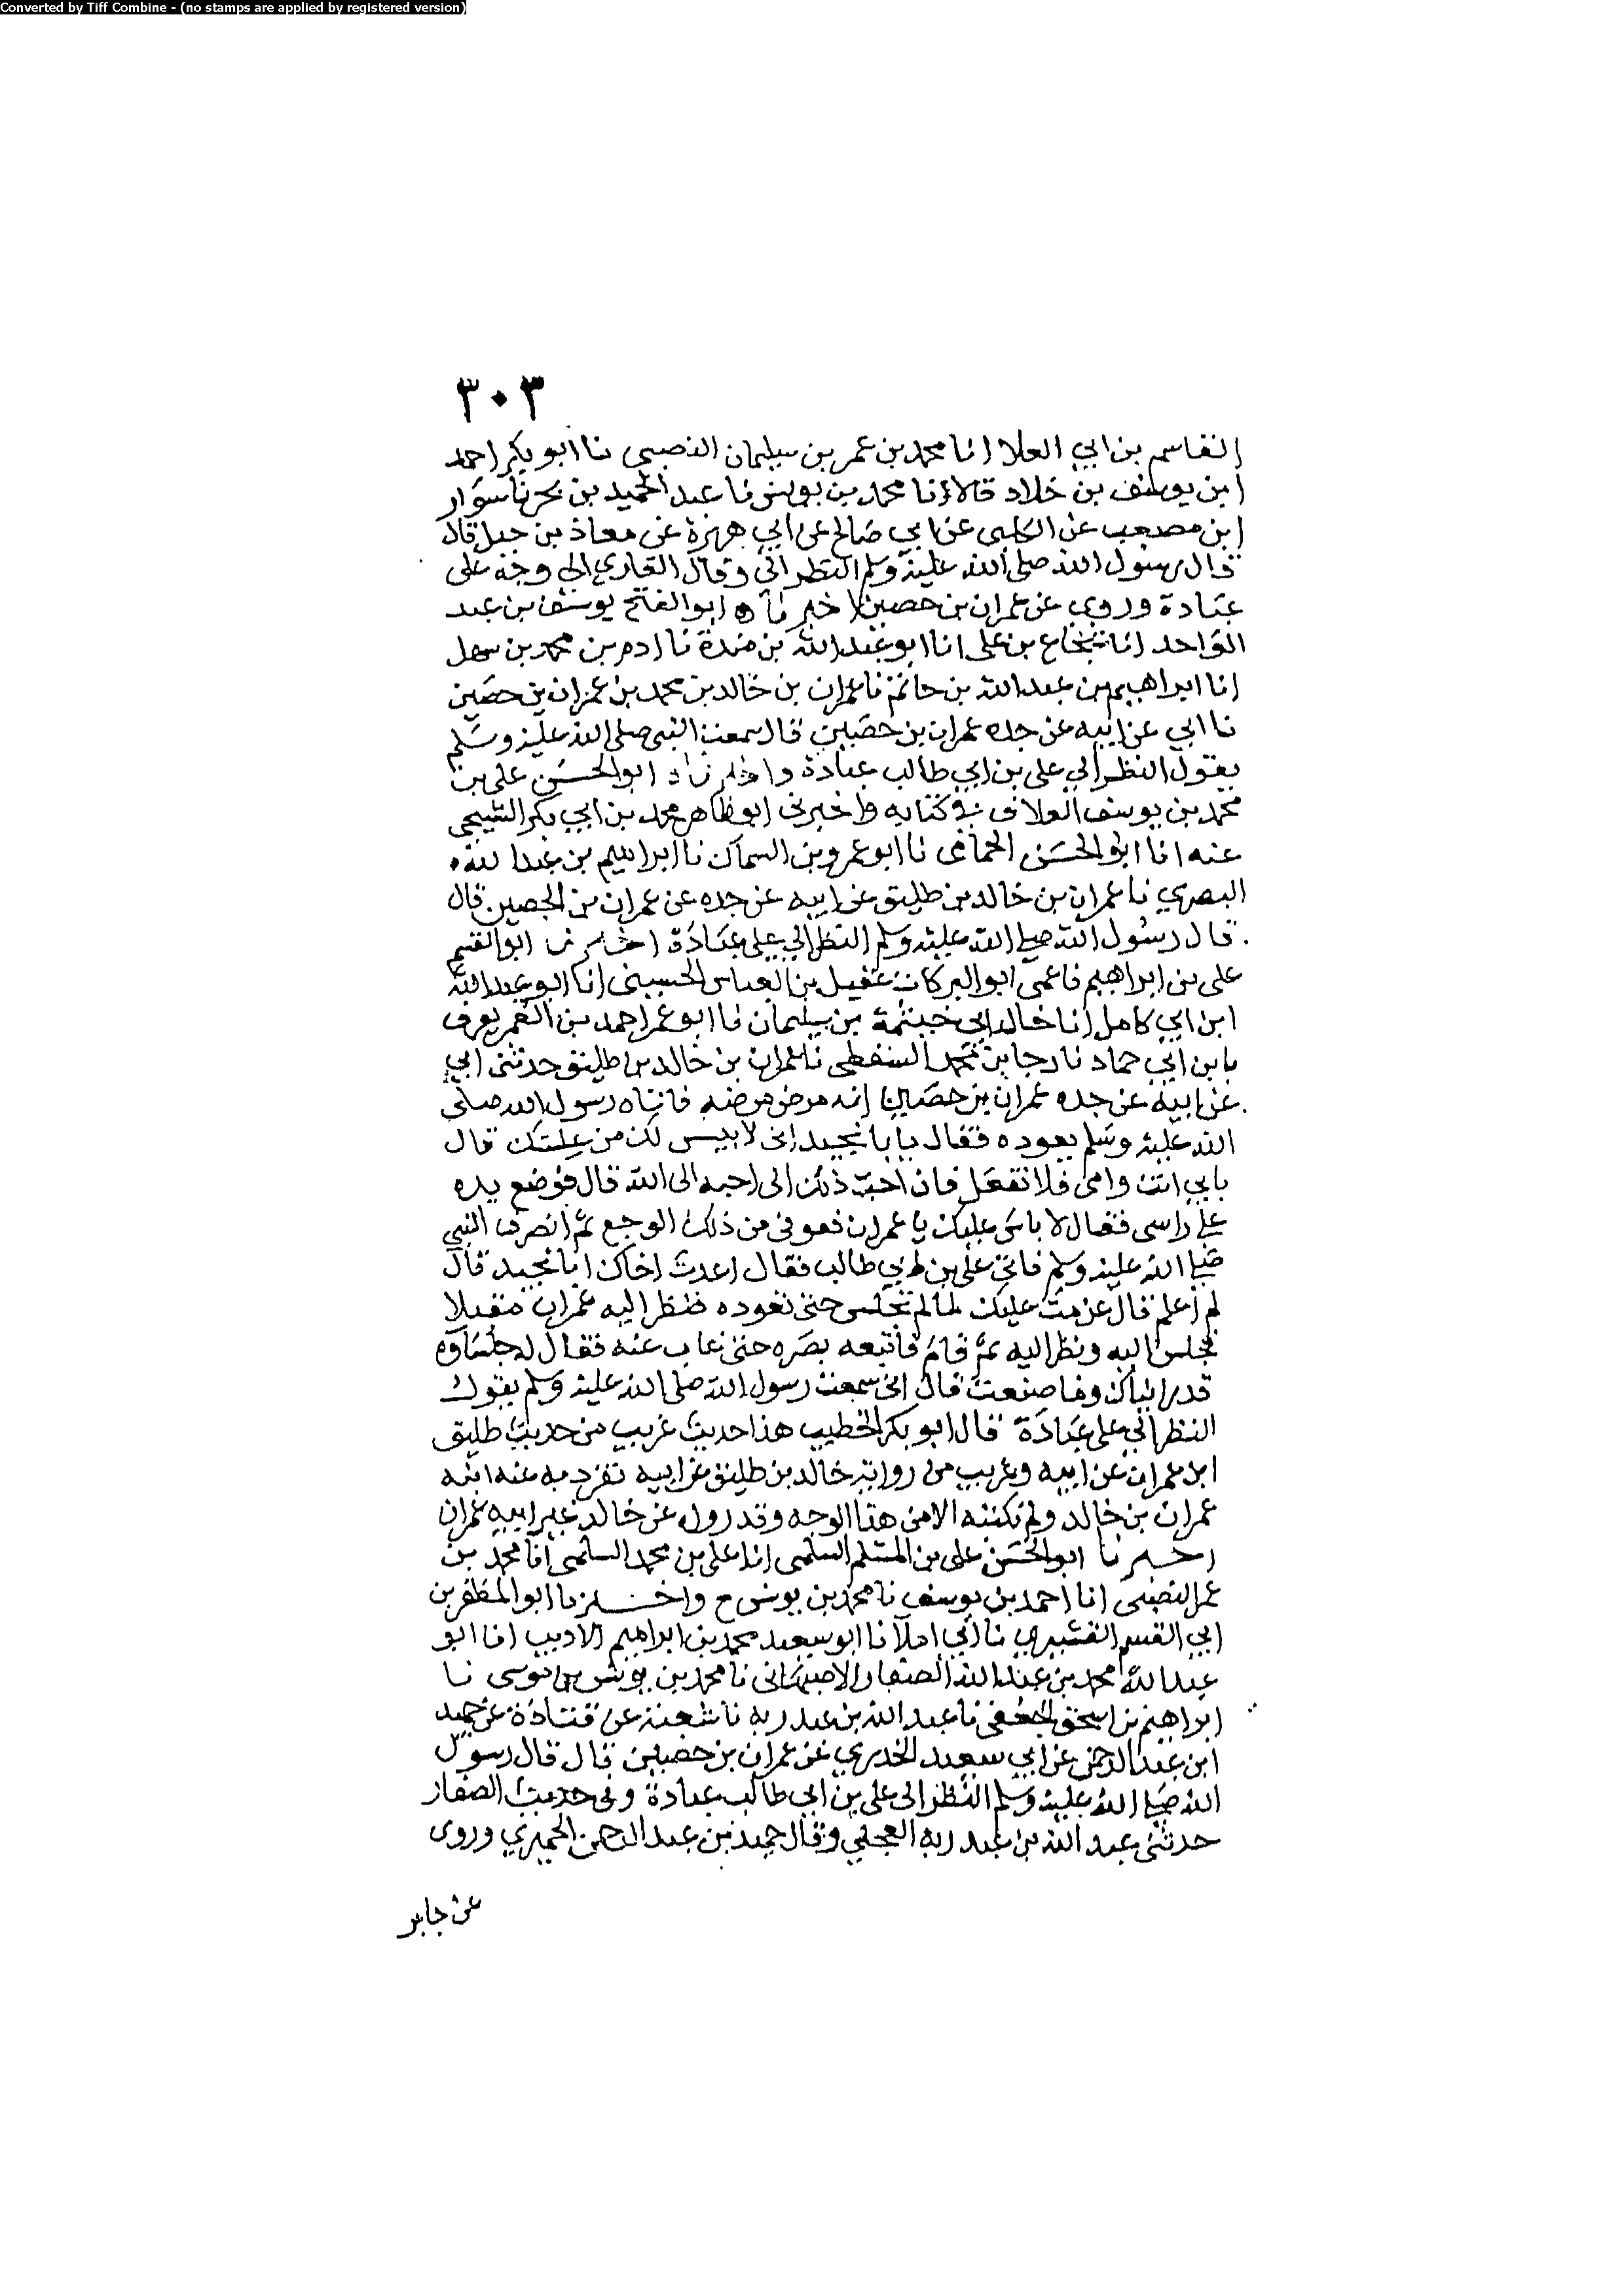 Converted by Tiff Combine - (no stamps are applied by registered version)
٣٠٣
القاسم بن ابي العلا انا محمد بن عمر بن سليمان النصيبي نا ابو بكر احمد
ابن يوسف بن خلاد قالا نا محمد بن يونس نا عبد الحميد بن بحر نا سوار
ابن مصعب عن الكلبي عن ابي صالح عن ابي هريرة عن معاذ بن جبل قال
قال رسول الله صلى الله عليه وسلم النظر الى وقال القاري الى وجه علي
عبادة وروي عن عمران بن حصين اخبرناه ابو الفتح يوسف بن عبد
الواحد انا شجاع بن علي انا ابو عبد الله بن مندة نا ادم بن محمد بن سهل
انا ابراهيم بن عبد الله بن حاتم نا عمران بن خالد بن محمد بن عمران بن حصين
نا ابي عن ابيه عن جده عمران بن حصين قال سمعت النبي صلى الله عليه وسلم
يقول النظر الي علي بن ابي طالب عبادة واخبرنا ابو الحسن علي بن
محمد بن يوسف العلاف في كتابه واخبرني ابو طاهر محمد بن ابي بكر السنجي
عنه انا ابو الحسن الحمامي نا ابو عمرو بن السماك نا ابراهيم بن عبد الله
البصري نا عمران بن خالد بن طليق عن ابيه عن جده عن عمران بن الحصين قال
قال رسول الله صلى الله عليه وسلم النظر الي علي عبادة اخبرنا ابو القسم
علي بن ابراهيم نا عمي ابو البركات عقيل بن العباس الحسيني انا ابو عبد الله
ابن ابي كامل انا خال ابي خيثمة بن سليمان نا ابو عمر احمد بن الغمر يعرف
بابن ابي حماد نا رجا بن محمد السقطي نا عمران بن خالد بن طليق حدثني ابي
عن ابيه عن جده عمران بن حصين انه مرض مرضه فاتاه رسول الله صلى
الله عليه وسلم يعوده فقال يا با نجيد اني لا بيس لك من علتك قال
بابي انت وامي فلا تفعل فان احب ذلك الي احبه الى الله قال فوضع يده
على راسي فقال لا باس عليك يا عمران فعوفي من ذلك الوجع ثم انصرف النبي
صلى الله عليه وسلم فاتي علي بن ابي طالب فقال اعدت اخاك ابا نجيد قال
لم اعلم قال عزمت عليك لما لم تجلس حتى تعوده فنظر اليه عمران مقبلا
فجلس اليه ونظر اليه ثم قام فاتبعه بصره حتى غاب عنه فقال له جلساؤه
قد رايناك وما صنعت قال اني سمعت رسول الله صلى الله عليه وسلم يقول
النظر الي علي عبادة قال ابو بكر الخطيب هذا حديث غريب من حديث طليق
ابن عمران عن ابيه وغريب من رواية خالد بن طليق عن ابيه تفرد به عنه ابنه
عمران بن خالد ولم نكتبه الا من هذا الوجه وقد روى عن خالد غير ابيه عمران
اخبرنا ابو الحسن علي بن المسلم السلمي انا علي بن محمد السلمي انا محمد بن
عمر النصيبي انا احمد بن يوسف نا محمد بن يونس ح واخبرنا ابو المظفر بن
ابي القسم القشيري نا ابي املا نا ابو سعيد محمد بن ابراهيم الاديب انا ابو
عبد الله محمد بن عبد الله الصفار الاصبهاني نا محمد بن يونس بن موسى نا
ابراهيم بن اسحق الجعفي نا عبد الله بن عبد ربه نا شعبة عن قتادة عن حميد
ابن عبد الرحمن عن ابي سعيد الخدري عن عمران بن حصين قال قال رسول
الله صلى الله عليه وسلم النظر الى علي بن ابي طالب عبادة وفي حديث الصفار
حدثني عبد الله بن عبد ربه العجلي وقال حميد بن عبد الرحمن الحميري وروى
عن جابر